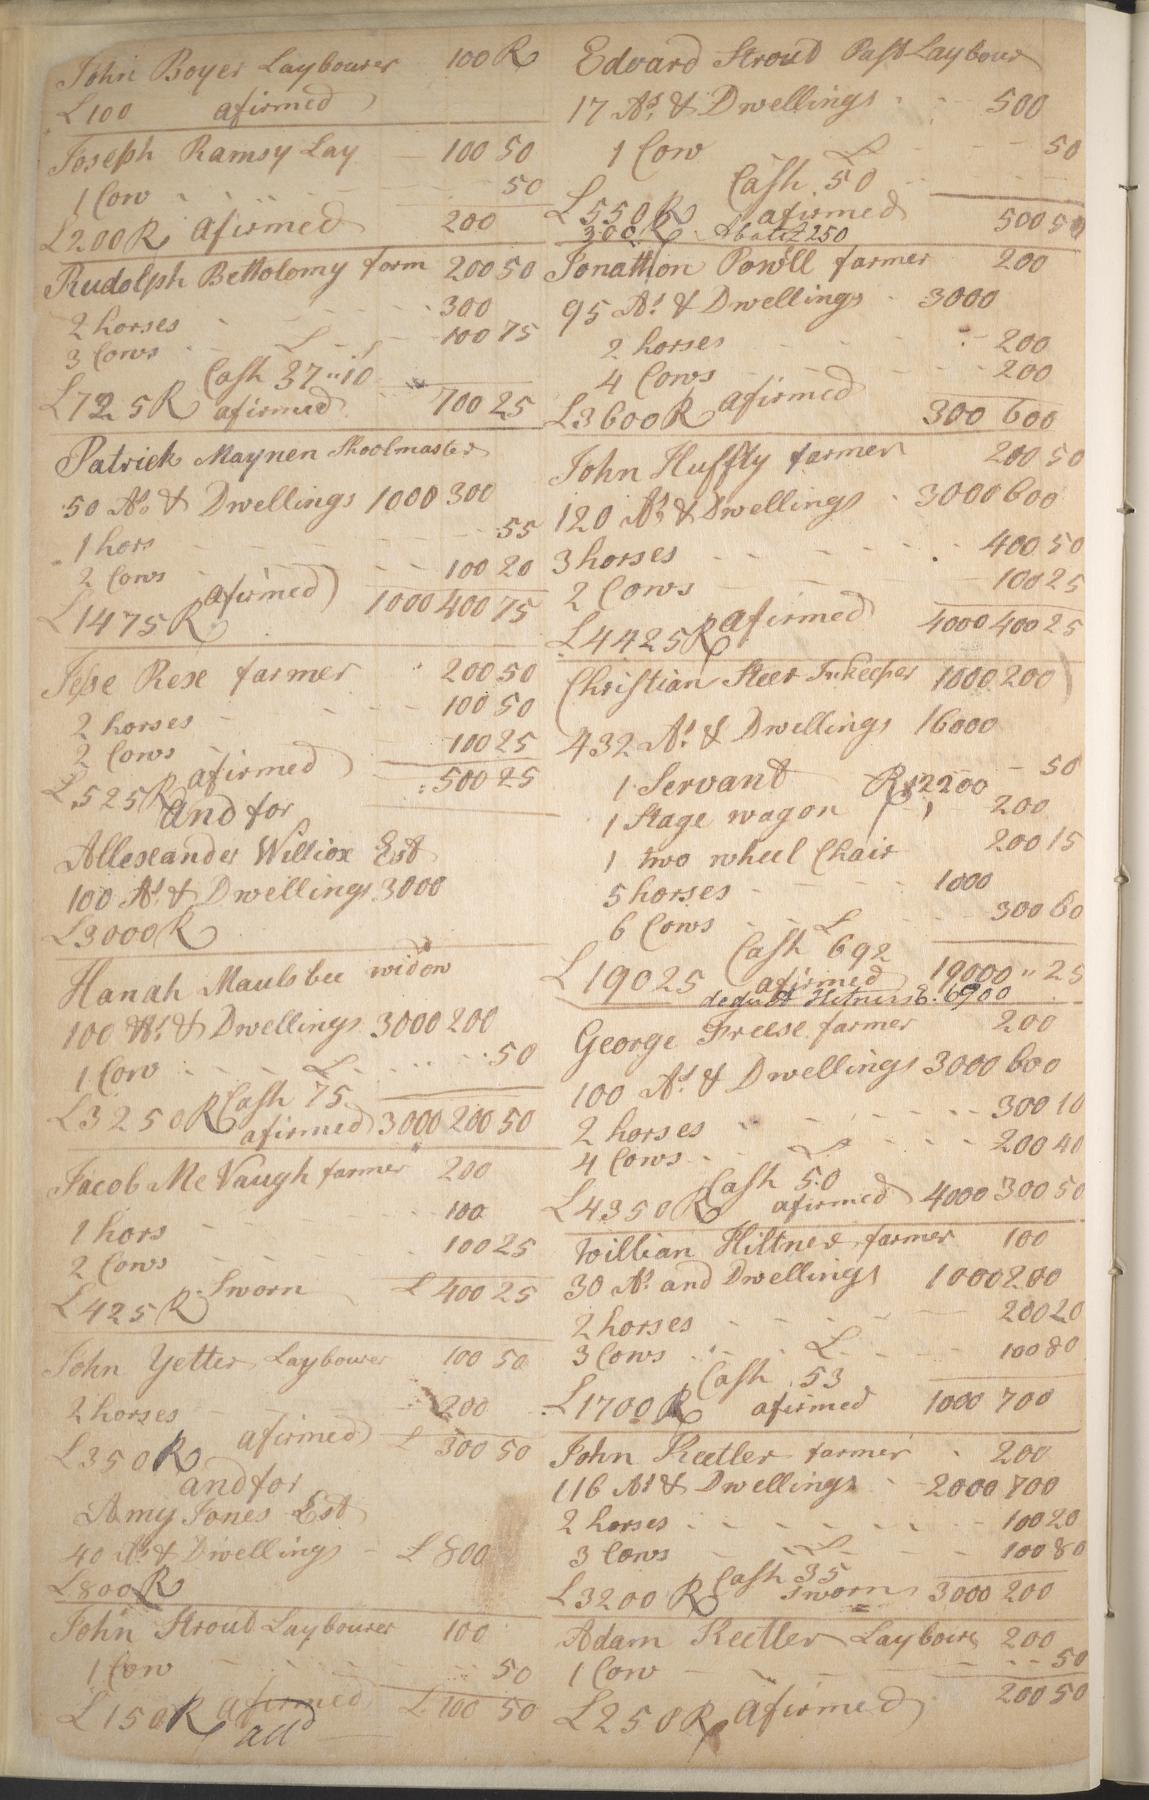 John Boyer Laybourer 100 R
£100 afirmed
Joseph Ramsy Lay 100 50
1 Cow 50
£200 R afirmed 200
Rudolph Bettolomy farm 200 50
2 horses 300
3 Cows £ 100 75
Cash 37 " 10
£725 R afirmed 700 25
Patrick Maynen Skoolmaster
50 As. & Dwellings 1000 300
1 hors 55
2 Cows 100 20
£1475 R afirmed 1000 400 75
Jese Rese farmer 200 50
2 horses 100 50
2 Cows 100 25
£525 R afirmed 500 25
and for
Allexander Williox Est
100 As. & Dwellings 3000
£3000 R
Hanah Maulsbee widow
100 As. & Dwellings 3000 200
1 Cow £ 50
Cash 75
£3250 R afirmed 3000 200 50
Jacob McVaugh farmer 200
1 hors 100
2 Cows 100 25
£425 R Sworn £ 400 25
John Yetter Laybourer 100 50
2 horses 200
£350 R afirmed £ 300 50
and for
Amy Jones Est
40 As & Dwellings £800
£800 R
John Stroud Laybourer 100
1 Cow 50
£150 R afirmed £ 100 50
Edward Stroud Past Laybour
17 As. & Dwellings 500
1 Cow £ 50
Cash 50
£550 R afirmed 500 50
300 R Abate £250
Jonathon Powll farmer 200
95 As. & Dwellings 3000
2 horses 200
4 Cows 200
£3600 R afirmed 300 600
John Huffty farmer 200 50
120 As & Dwellings 3000 600
3 horses 400 50
2 Cows 100 25
£4425 R afirmed 4000 400 25
Christian Steer Inkeeper 1000 200
432 As. & Dwellings 16000
1 Servant 50
R 12200
1 Stage wagon 200
1 two wheel Chair 200 15
5 horses 1000
6 Cows £ 300 60
Cash 692
£19025 afirmed 19000 " 25
deduct 6900
George Freese farmer 200
100 As. & Dwellings 3000 600
2 horses 300 10
4 Cows £ 200 40
Cash 50
£4350 R afirmed 4000 300 50
Willian Hiltner farmer 100
30 As. and Dwellings 1000 200
2 horses 200 20
3 Cows £ 100 80
Cash 53
£1700 R afirmed 1000 700
John Keetler farmer 200
116 As & Dwellings 2000 700
2 horses 100 20
3 Cows £ 100 80
Cash 35
£3200 R Sworn 3000 200
Adam Keetler Layboure 200
1 Cow 50
200 50
£250 R afirmed